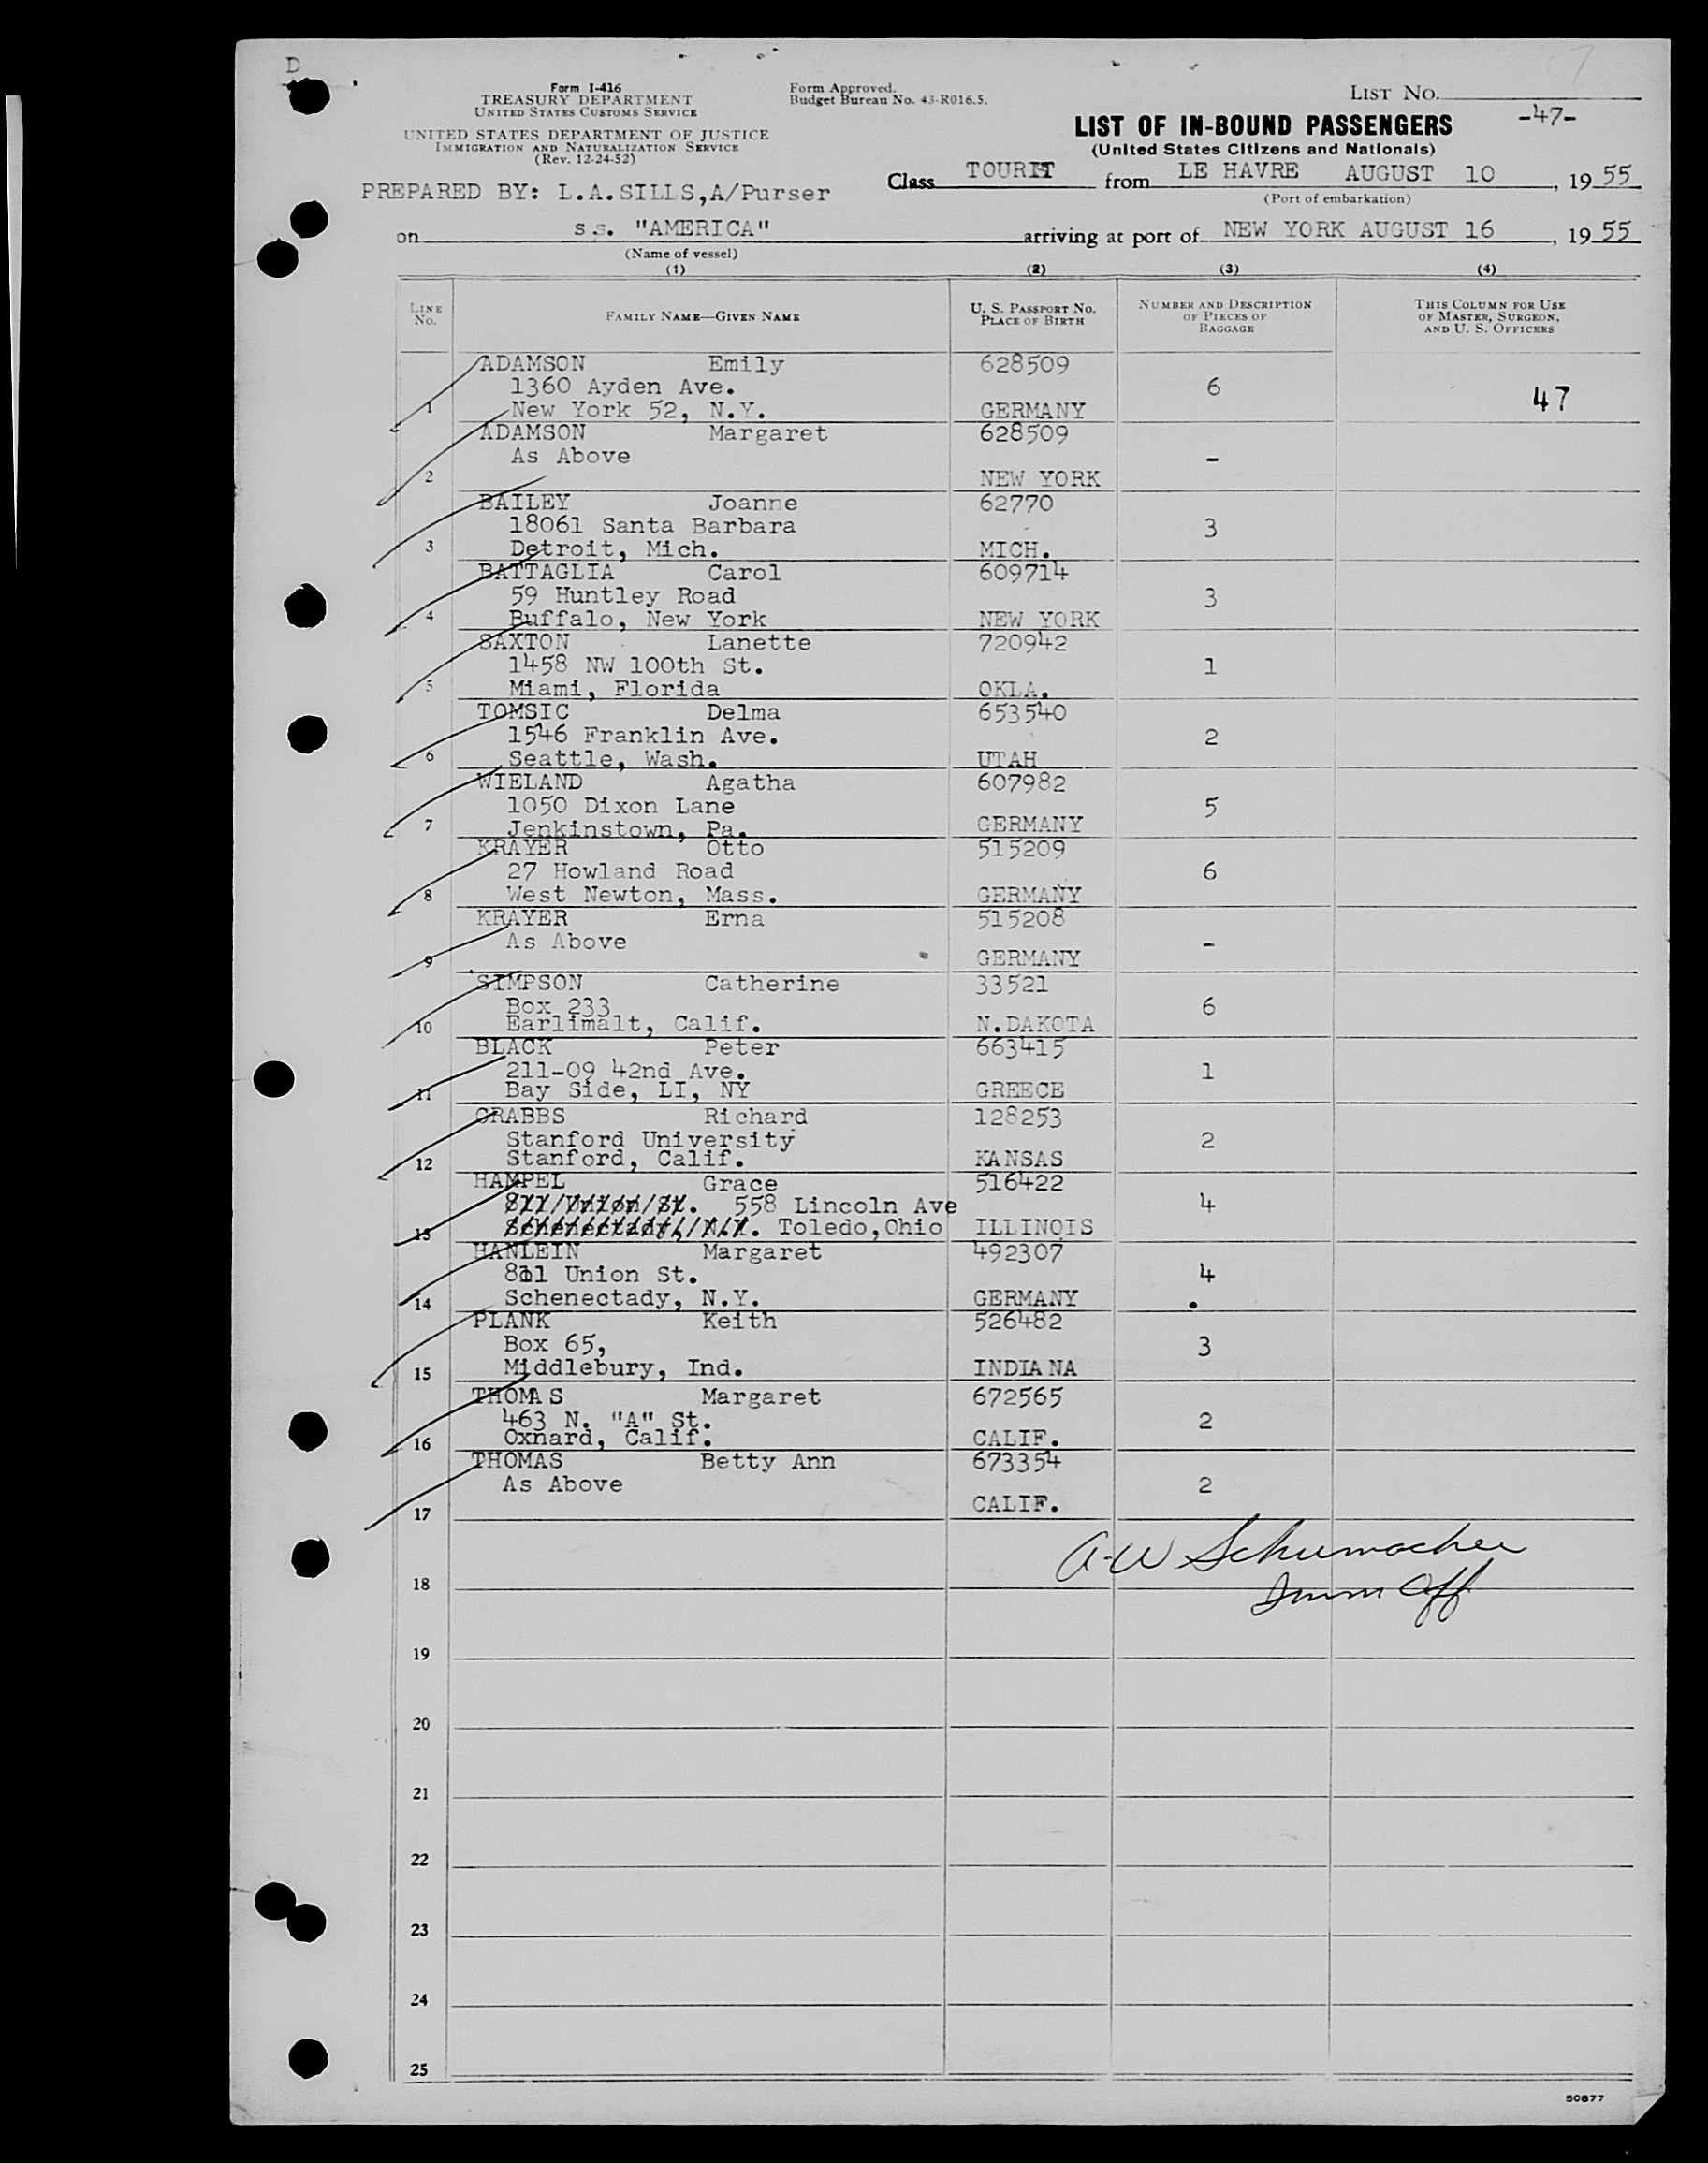 D
Form I-416
TREASURY DEPARTMENT
UNITED STATES CUSTOMS SERVICE
UNITED STATES DEPARTMENT OF JUSTICE
IMMIGRATION AND NATURALIZATION SERVICE
(Rev. 12-24-52)
Form Approved.
Budget Bureau No. 43-R016.5.
LIST NO.
-47-
LIST OF IN-BOUND PASSENGERS
(United States Citizens and Nationals)
PREPARED BY: L.A.SILLS,A/Purser
Class TOURIST from LE HAVRE AUGUST 10, 1955
(Port of embarkation)
on s s. "AMERICA" arriving at port of NEW YORK AUGUST 16, 1955
(Name of vessel)
(1) (2) (3) (4)
LINE NO. FAMILY NAME—GIVEN NAME U. S. PASSPORT NO. PLACE OF BIRTH NUMBER AND DESCRIPTION OF PIECES OF BAGGAGE THIS COLUMN FOR USE OF MASTER, SURGEON, AND U. S. OFFICERS
ADAMSON Emily 628509
1360 Ayden Ave. 6 47
1 New York 52, N.Y. GERMANY
ADAMSON Margaret 628509
As Above -
2 NEW YORK
BAILEY Joanne 62770
18061 Santa Barbara 3
3 Detroit, Mich. MICH.
BATTAGLIA Carol 609714
59 Huntley Road 3
4 Buffalo, New York NEW YORK
SAXTON Lanette 720942
1458 NW 100th St. 1
5 Miami, Florida OKLA.
TOMSIC Delma 653540
1546 Franklin Ave. 2
6 Seattle, Wash. UTAH
WIELAND Agatha 607982
1050 Dixon Lane 5
7 Jenkinstown, Pa. GERMANY
KRAYER Otto 515209
27 Howland Road 6
8 West Newton, Mass. GERMANY
KRAYER Erna 515208
As Above -
9 GERMANY
SIMPSON Catherine 33521
Box 233 6
10 Earlimalt, Calif. N.DAKOTA
BLACK Peter 663415
211-09 42nd Ave. 1
11 Bay Side, LI, NY GREECE
GRABBS Richard 128253
Stanford University 2
12 Stanford, Calif. KANSAS
HAMPEL Grace 516422
811 Union St. 558 Lincoln Ave 4
13 Schenectady, N.Y. Toledo,Ohio ILLINOIS
HANLEIN Margaret 492307
811 Union St. 4
14 Schenectady, N.Y. GERMANY
PLANK Keith 526482
Box 65, 3
15 Middlebury, Ind. INDIANA
THOMAS Margaret 672565
463 N. "A" St. 2
16 Oxnard, Calif. CALIF.
THOMAS Betty Ann 673354
As Above 2
17 CALIF.
A-W Schumacher
18 Imm Off
19
20
21
22
23
24
25
50877